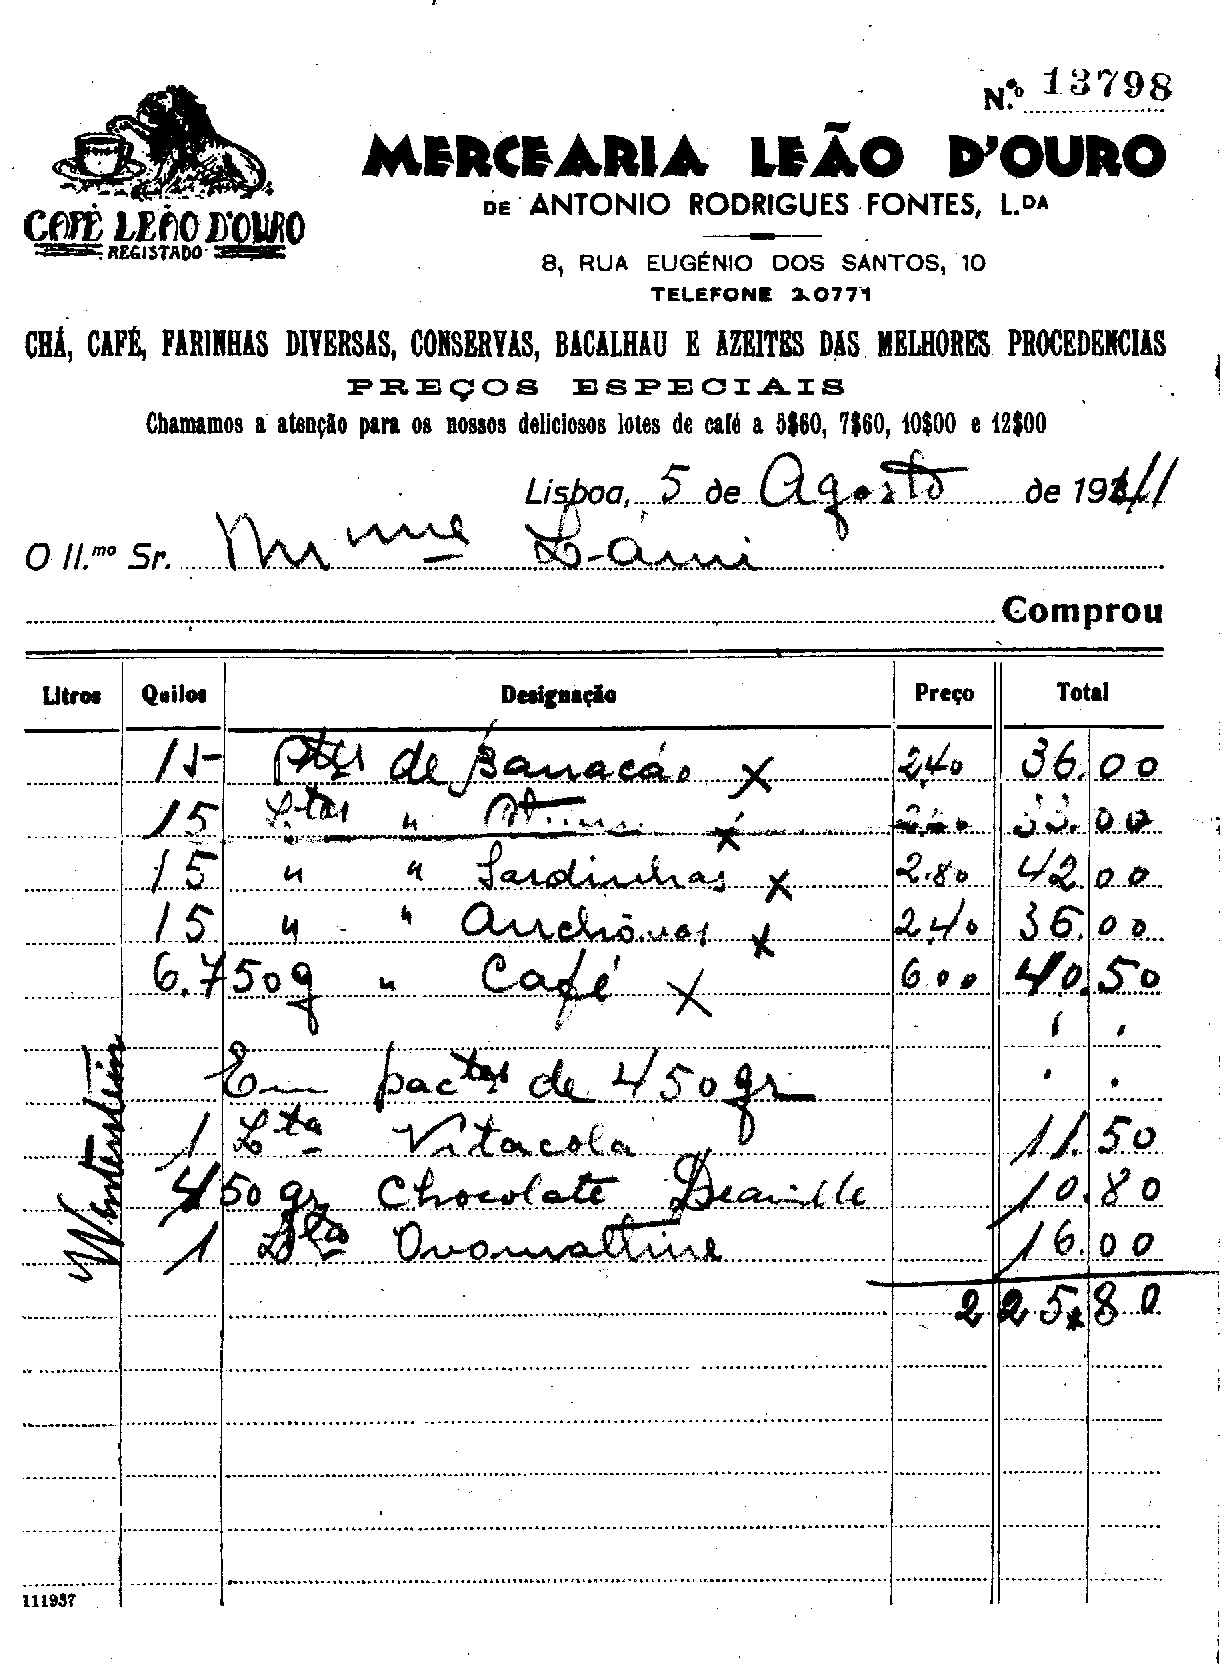 N.º 13798
MERCEARIA LEÃO D'OURO
DE ANTONIO RODRIGUES FONTES, L.DA
CAFÉ LEÃO D'OURO
REGISTADO
8, RUA EUGÉNIO DOS SANTOS, 10
TELEFONE 20771
CHÁ, CAFÉ, FARINHAS DIVERSAS, CONSERVAS, BACALHAU E AZEITES DAS MELHORES PROCEDENCIAS
PREÇOS ESPECIAIS
Chamamos a atenção para os nossos deliciosos lotes de café a 5$60, 7$60, 10$00 e 12$00
Lisboa, 5 de Agosto de 1941
O Il.mo Sr. Mme
Comprou
Litros Quilos Designação Preço Total
15 de Banacáo X 2.40 36.00
15 Ltas " X 2.20 33.00
15 " " Sardinhas X 2.80 42.00
15 " " Anchôvas X 2.40 36.00
6.750g " Café X 6.00 40.50
Em pactes de 450 gr
1 Lta Vitacola 11.50
450 gr Chocolate 10.80
1 Lta Ovomaltine 16.00
225.80
111937